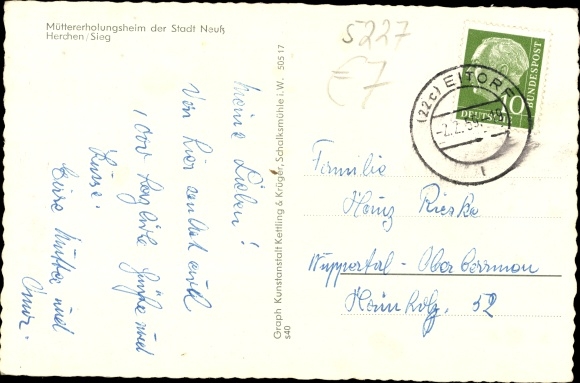 Müttererholungsheim der Stadt Neuß
Herchen/Sieg
5227
£7
Meine Lieben!
Von hier sendet euch
1000 herzliche Grüße und
Küsse.
Eure Mutter und
Omi.
Graph. Kunstanstalt Kettling & Krüger, Schalksmühle i. W. 505 17
s40
(22c) EITORF
2.2.59
1
DEUTSCHE
BUNDESPOST
10
Familie
Heinz Rieske
Wuppertal-Oberbarmen
52